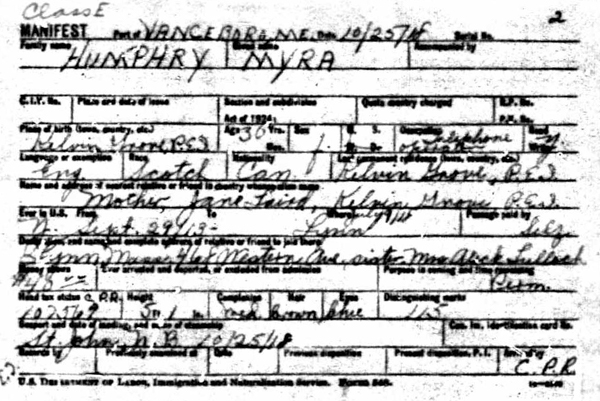 Class E
2
MANIFEST Port of VANCEBORO, ME. Date 10/25/18 Serial No.
Family name Given name Accompanied by
HUMPHRY MYRA
C.I.V. No. Place and date of issue Section and subdivision Quota country charged R.P. No.
Act of 1924: P.V. No.
Place of birth (town, country, etc.) Age 30 Yrs. Sex M. S. Occupation Read
Kelvin Grove P.E.I. Mos. f W. D. telephone operator Write y
Language or exemption Race Nationality Last permanent residence (town, country, etc.)
Eng. Scotch Can. Kelvin Grove, P.E.I.
Name and address of nearest relative or friend in country whence alien came
Mother, Jane Laird, Kelvin Grove, P.E.I.
Ever in U.S. From To Where Passage paid by
Sept. 29/13- Lynn Self
Destination, and name and complete address of relative or friend to join there
Lynn Mass, Western Ave, sister Mrs Alick Tulloch
Money shown Ever arrested and deported, or excluded from admission Purpose in coming and time remaining
Perm.
Head tax status C.P.R. Height Complexion Hair Eyes Distinguishing marks
5 1 med brown blue
Seaport and date of landing, and name of steamship
St. John, N.B. 10/25/18
Records by Previously examined at Date Previous disposition Present disposition, P.I. Arrived by
C.P.R.
U.S. Department of Labor, Immigration and Naturalization Service. Form 548.